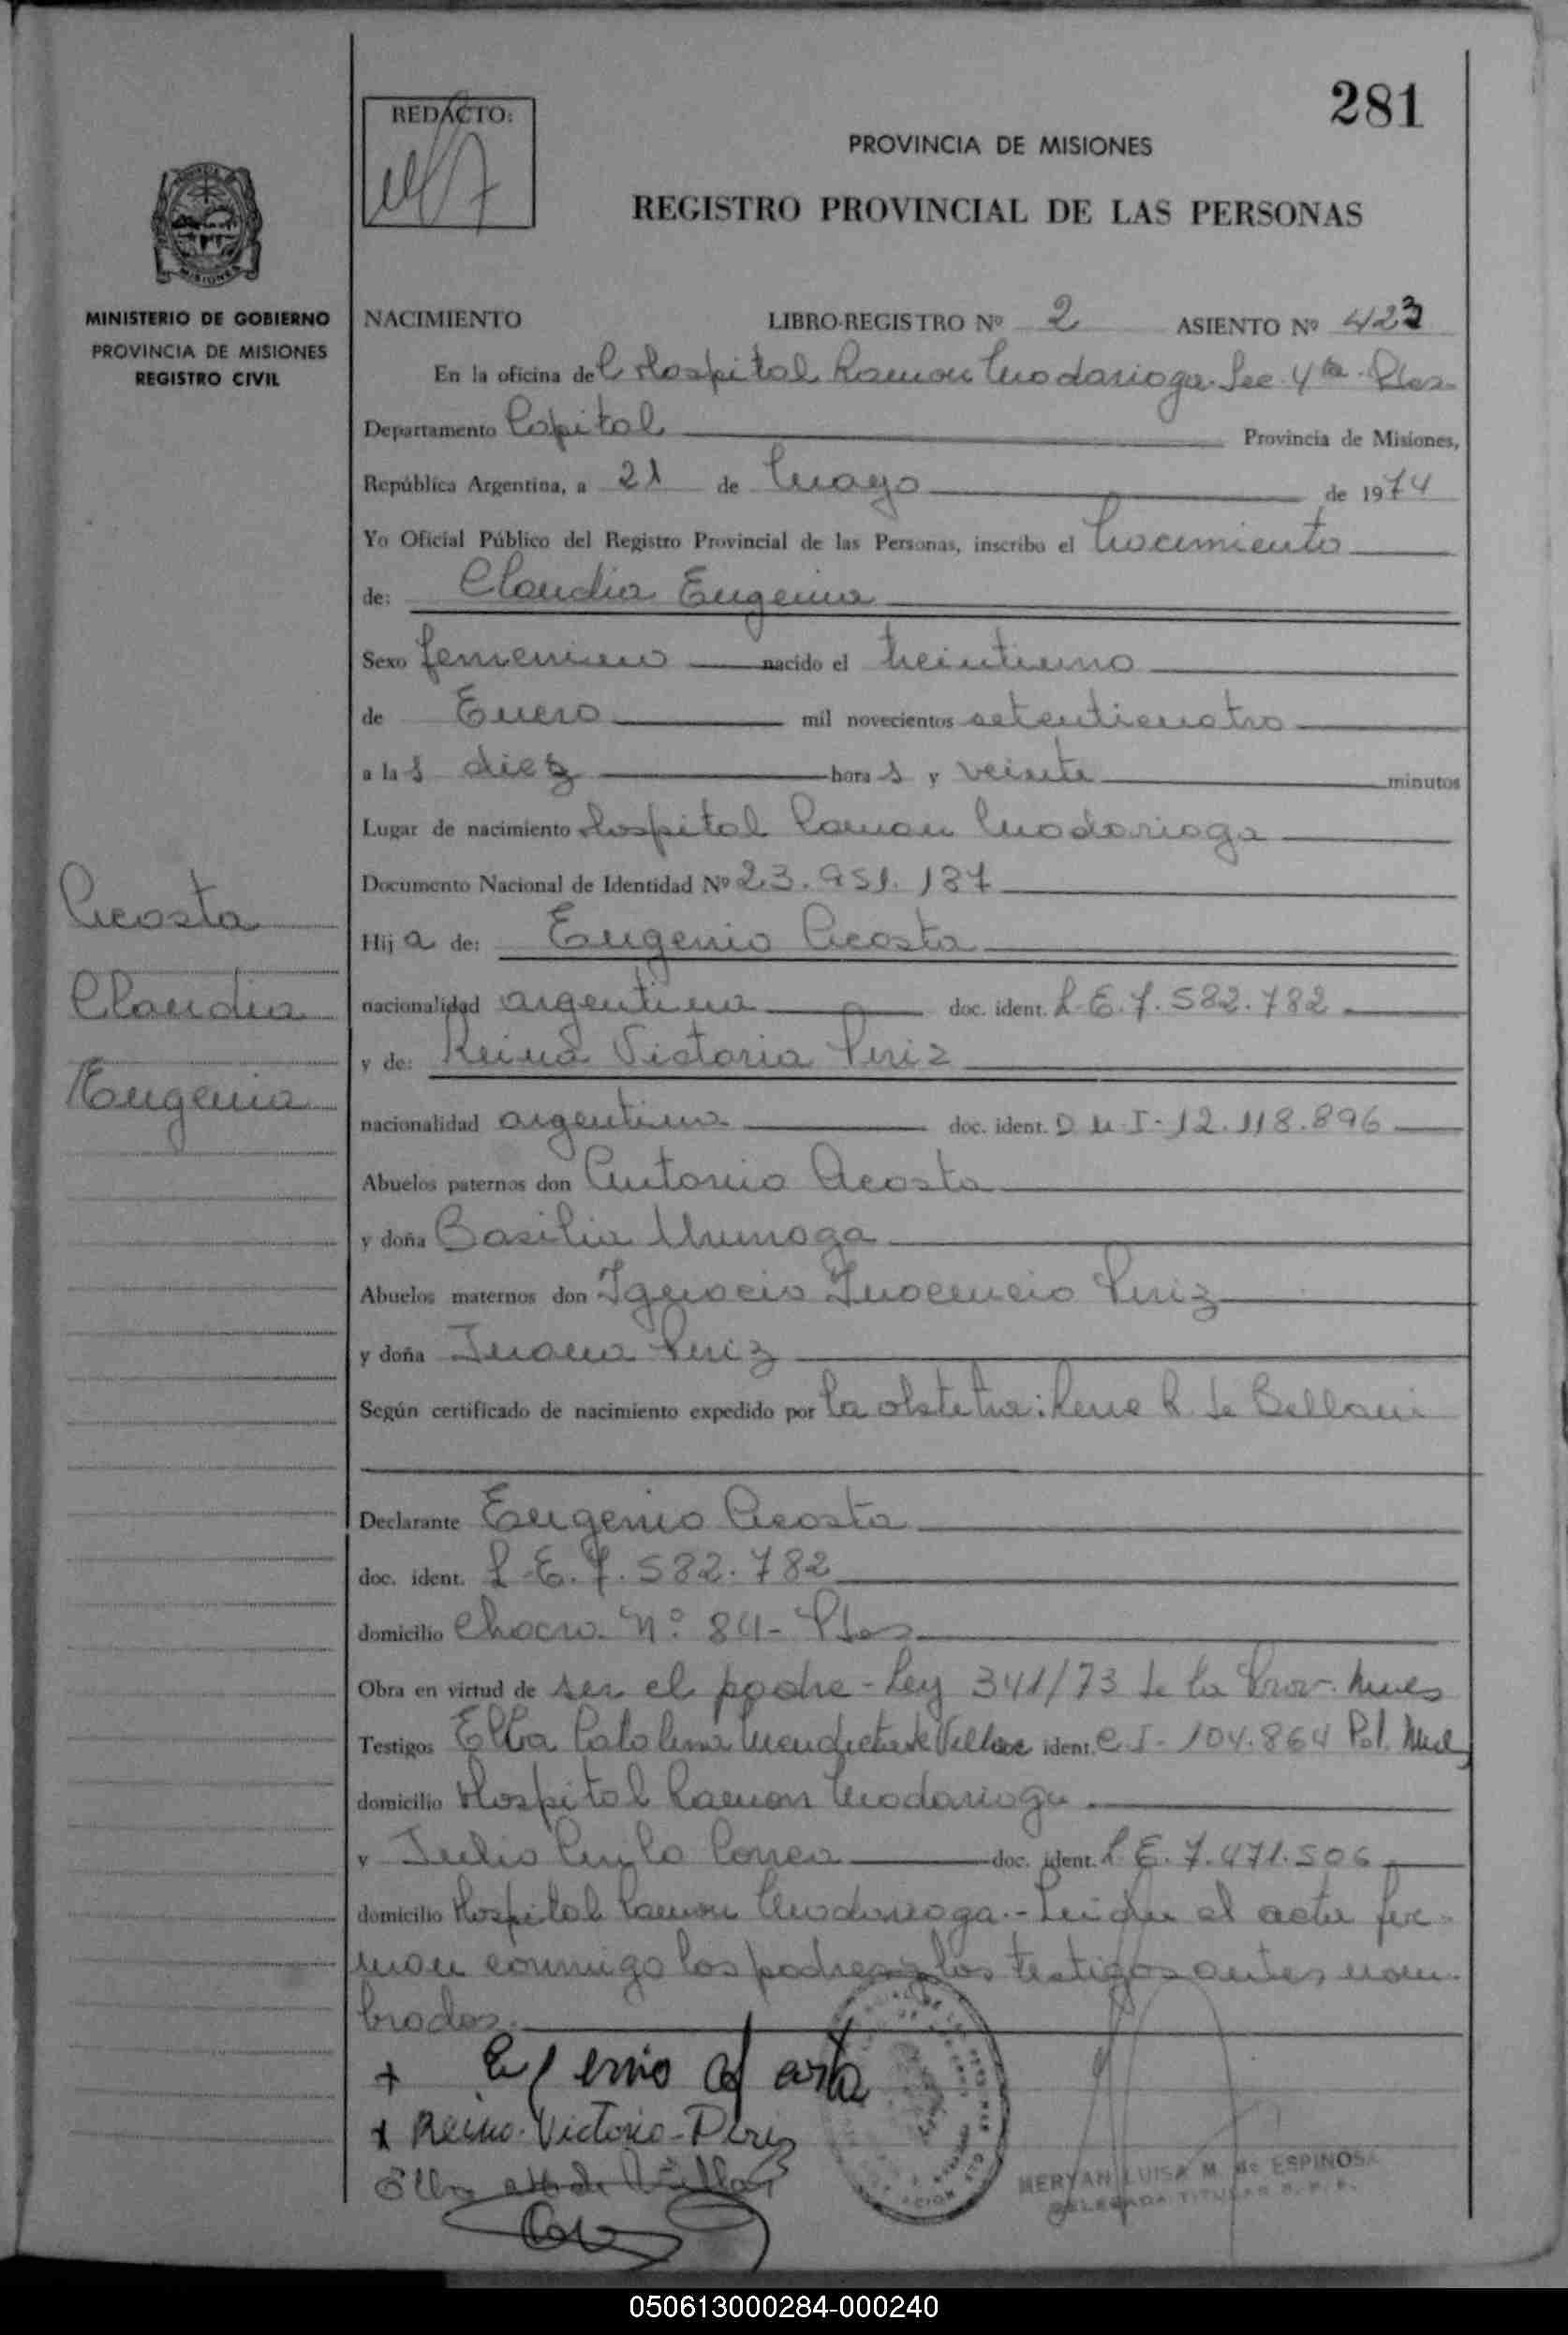 281
REDACTO:
PROVINCIA DE MISIONES
REGISTRO PROVINCIAL DE LAS PERSONAS
MISIONES
MINISTERIO DE GOBIERNO
PROVINCIA DE MISIONES
REGISTRO CIVIL
NACIMIENTO LIBRO-REGISTRO Nº 2 ASIENTO Nº 423
En la oficina del Hospital Ramon Madariaga. Sec. 4ta. Pdas.
Departamento Capital Provincia de Misiones,
República Argentina, a 21 de Mayo de 1974
Yo Oficial Público del Registro Provincial de las Personas, inscribo el Nacimiento
de: Claudia Eugenia
Sexo femenino nacido el treintiuno
de Enero mil novecientos setenticuatro
a las diez horas y veinte minutos
Lugar de nacimiento Hospital Ramon Madariaga
Documento Nacional de Identidad Nº 23.951.137
Acosta
Claudia
Eugenia
Hija de: Eugenio Acosta
nacionalidad argentina doc. ident. L.E. 7.582.782
y de: Reina Victoria Piriz
nacionalidad argentina doc. ident. D N I - 12.118.896
Abuelos paternos don Antonio Acosta
y doña Basilia
Abuelos maternos don Ignacio Inocencio Piriz
y doña Juana Piriz
Según certificado de nacimiento expedido por la obstetra: Rene R. de Bellani
Declarante Eugenio Acosta
doc. ident. L.E. 7.582.782
domicilio Chacra Nº 84 - Pdas
Obra en virtud de ser el padre - Ley 341/73 de la Prov. Mnes
Testigos Elba Catalina ident. C I - 104.864 Pol. Mnes
domicilio Hospital Ramon Madariaga
y Julio Correa doc. ident. L.E. 7.471.506
domicilio Hospital Ramon Madariaga. - Leida el acta fir-
man conmigo los padres y los testigos antes nom-
brados.
+ Eugenio Acosta
x Reina Victoria Piriz
MERYAN LUISA M. de ESPINOSA
DELEGADA TITULAR R. P. P.
050613000284-000240